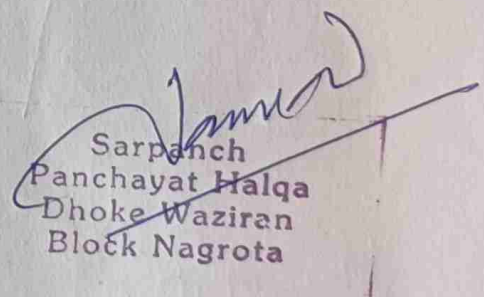 Sarpanch
Panchayat Halqa
Dhoke Waziran
Block Nagrota